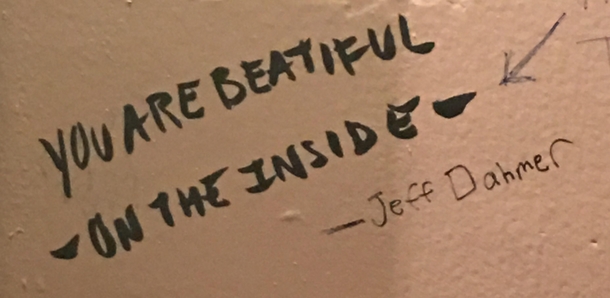 YOU ARE BEATIFUL
- ON THE INSIDE -
- Jeff Dahmer